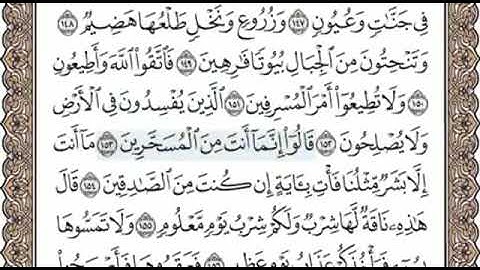 فِى جَنَّٰتٍ وَعُيُونٍ ﴿١٤٧﴾ وَزُرُوعٍ وَنَخْلٍ طَلْعُهَا هَضِيمٌ ﴿١٤٨﴾
وَتَنْحِتُونَ مِنَ ٱلْجِبَالِ بُيُوتًا فَٰرِهِينَ ﴿١٤٩﴾ فَٱتَّقُوا۟ ٱللَّهَ وَأَطِيعُونِ
﴿١٥٠﴾ وَلَا تُطِيعُوٓا۟ أَمْرَ ٱلْمُسْرِفِينَ ﴿١٥١﴾ ٱلَّذِينَ يُفْسِدُونَ فِى ٱلْأَرْضِ
وَلَا يُصْلِحُونَ ﴿١٥٢﴾ قَالُوٓا۟ إِنَّمَآ أَنتَ مِنَ ٱلْمُسَحَّرِينَ ﴿١٥٣﴾ مَآ أَنتَ
إِلَّا بَشَرٌ مِّثْلُنَا فَأْتِ بِـَٔايَةٍ إِن كُنتَ مِنَ ٱلصَّٰدِقِينَ ﴿١٥٤﴾ قَالَ
هَٰذِهِۦ نَاقَةٌ لَّهَا شِرْبٌ وَلَكُمْ شِرْبُ يَوْمٍ مَّعْلُومٍ ﴿١٥٥﴾ وَلَا تَمَسُّوهَا
بِسُوٓءٍ فَيَأْخُذَكُمْ عَذَابُ يَوْمٍ عَظِيمٍ ﴿١٥٦﴾ فَعَقَرُوهَا فَأَصْبَحُوا۟